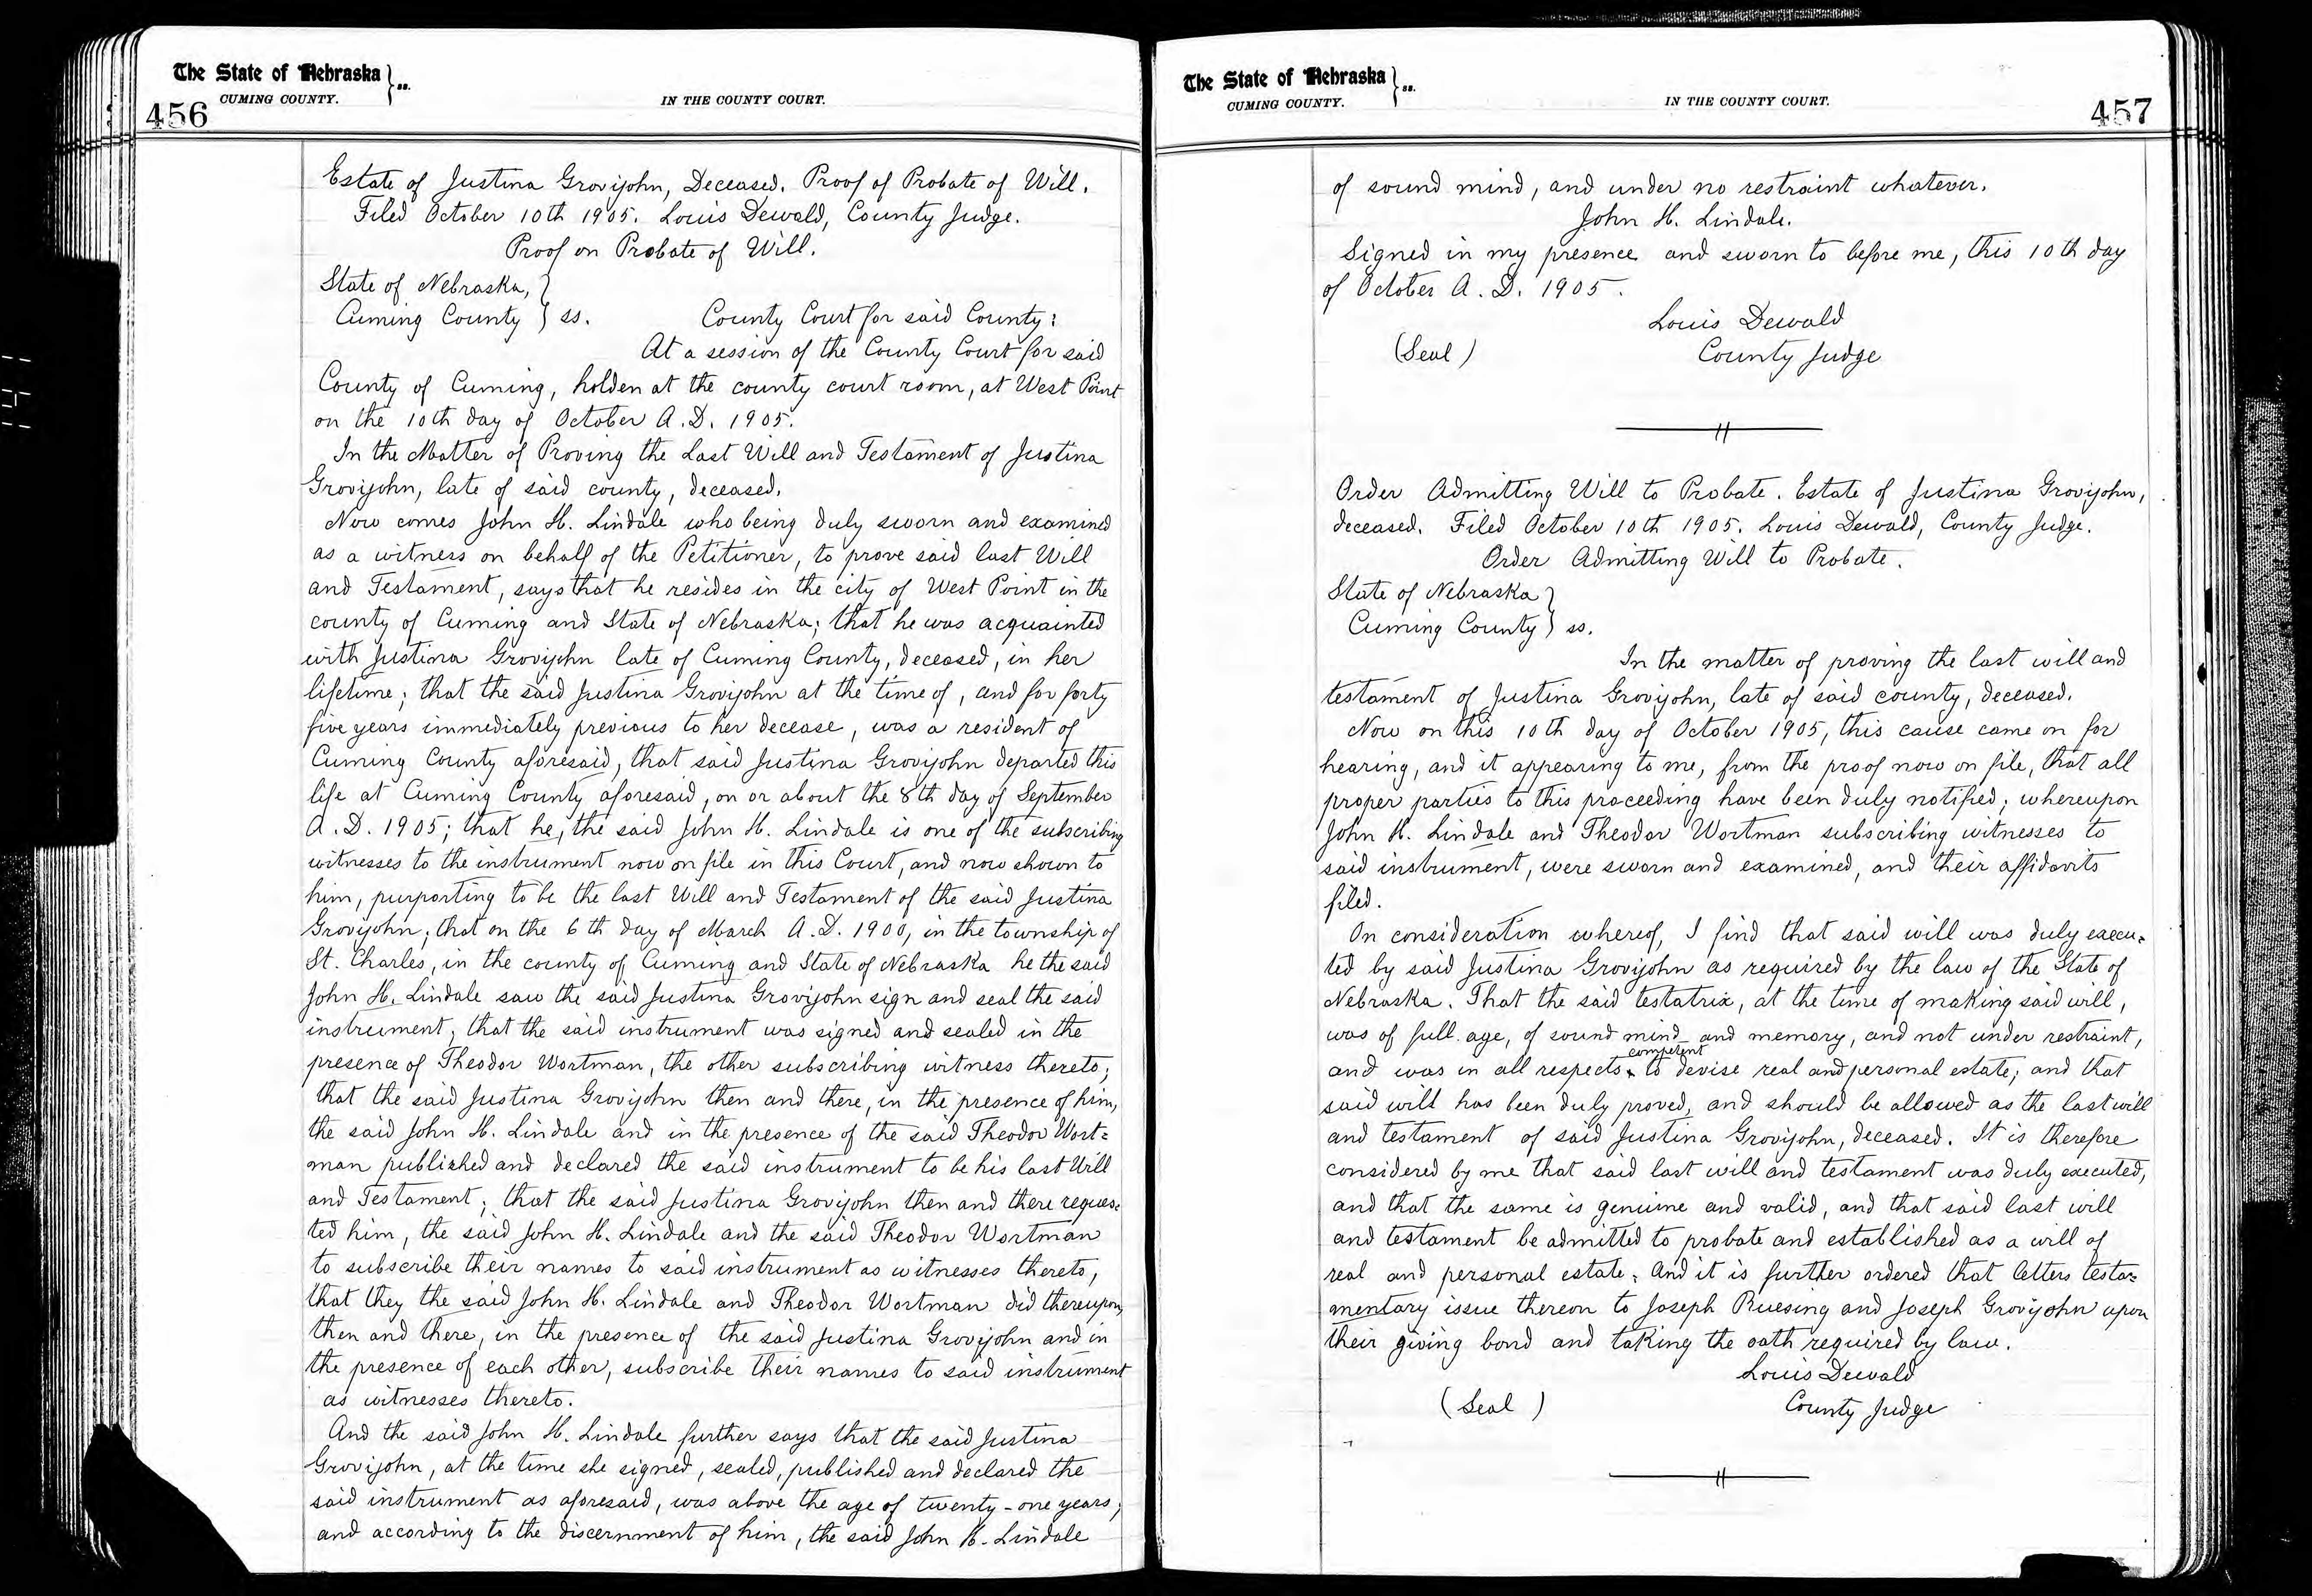 The State of Nebraska } ss.
CUMING COUNTY.
IN THE COUNTY COURT.
456
Estate of Justina Grovijohn, Deceased. Proof of Probate of Will.
Filed October 10th 1905. Louis Dewald, County Judge.
Proof on Probate of Will.
State of Nebraska, }
Cuming County } ss. County Court for said County:
At a session of the County Court for said
County of Cuming, holden at the county court room, at West Point
on the 10th day of October A.D. 1905.
In the Matter of Proving the Last Will and Testament of Justina
Grovijohn, late of said county, deceased.
Now comes John H. Lindale who being duly sworn and examined
as a witness on behalf of the Petitioner, to prove said last Will
and Testament, says that he resides in the city of West Point in the
county of Cuming and State of Nebraska; that he was acquainted
with Justina Grovijohn late of Cuming County, deceased, in her
lifetime; that the said Justina Grovijohn at the time of, and for forty
five years immediately previous to her decease, was a resident of
Cuming County aforesaid, that said Justina Grovijohn departed this
life at Cuming County aforesaid, on or about the 8th day of September
A.D. 1905; that he, the said John H. Lindale is one of the subscribing
witnesses to the instrument now on file in this Court, and now shown to
him, purporting to be the last Will and Testament of the said Justina
Grovijohn; that on the 6th day of March A.D. 1900, in the township of
St. Charles, in the county of Cuming and State of Nebraska he the said
John H. Lindale saw the said Justina Grovijohn sign and seal the said
instrument; that the said instrument was signed and sealed in the
presence of Theodor Wortman, the other subscribing witness thereto;
that the said Justina Grovijohn then and there, in the presence of him,
the said John H. Lindale and in the presence of the said Theodor Wort=
man published and declared the said instrument to be his last Will
and Testament; that the said Justina Grovijohn then and there reques=
ted him, the said John H. Lindale and the said Theodor Wortman
to subscribe their names to said instrument as witnesses thereto,
that they the said John H. Lindale and Theodor Wortman did thereupon,
then and there, in the presence of the said Justina Grovijohn and in
the presence of each other, subscribe their names to said instrument
as witnesses thereto.
And the said John H. Lindale further says that the said Justina
Grovijohn, at the time she signed, sealed, published and declared the
said instrument as aforesaid, was above the age of twenty-one years,
and according to the discernment of him, the said John H. Lindale
The State of Nebraska } ss.
CUMING COUNTY.
IN THE COUNTY COURT.
457
of sound mind, and under no restraint whatever.
John H. Lindale.
Signed in my presence and sworn to before me, this 10th day
of October A.D. 1905.
Louis Dewald
(Seal) County Judge
Order Admitting Will to Probate. Estate of Justina Grovijohn,
deceased. Filed October 10th 1905. Louis Dewald, County Judge.
Order Admitting Will to Probate.
State of Nebraska }
Cuming County } ss.
In the matter of proving the last will and
testament of Justina Grovijohn, late of said county, deceased.
Now on this 10th day of October 1905, this cause came on for
hearing, and it appearing to me, from the proof now on file, that all
proper parties to this proceeding have been duly notified; whereupon
John H. Lindale and Theodor Wortman subscribing witnesses to
said instrument, were sworn and examined, and their affidavits
filed.
On consideration whereof, I find that said will was duly execu=
ted by said Justina Grovijohn as required by the law of the State of
Nebraska. That the said testatrix, at the time of making said will,
was of full age, of sound mind and memory, and not under restraint,
and was in all respects competent to devise real and personal estate; and that
said will has been duly proved, and should be allowed as the last will
and testament of said Justina Grovijohn, deceased. It is therefore
considered by me that said last will and testament was duly executed,
and that the same is genuine and valid, and that said last will
and testament be admitted to probate and established as a will of
real and personal estate; And it is further ordered that letters testa=
mentary issue thereon to Joseph Ruesing and Joseph Grovijohn upon
their giving bond and taking the oath required by law.
Louis Dewald
(Seal) County Judge